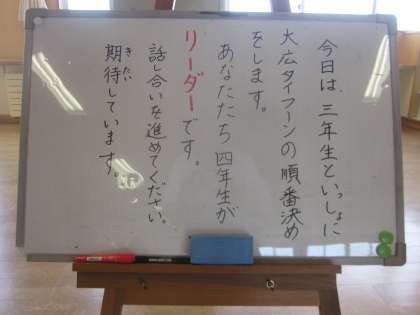 今日は、三年生といっしょに
大広タイフーンの順番決め
をします。
あなたたち四年生が
リーダーです。
話し合いを進めてください。
期待しています。
きたい